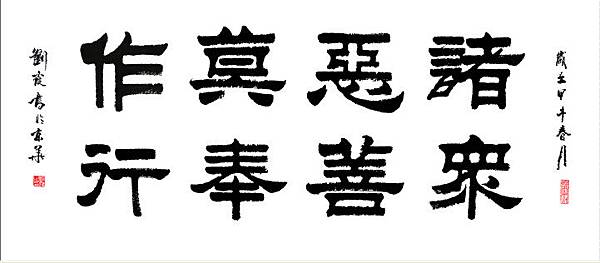 歲在甲午春月
諸惡莫作
衆善奉行
劉霞書於京華